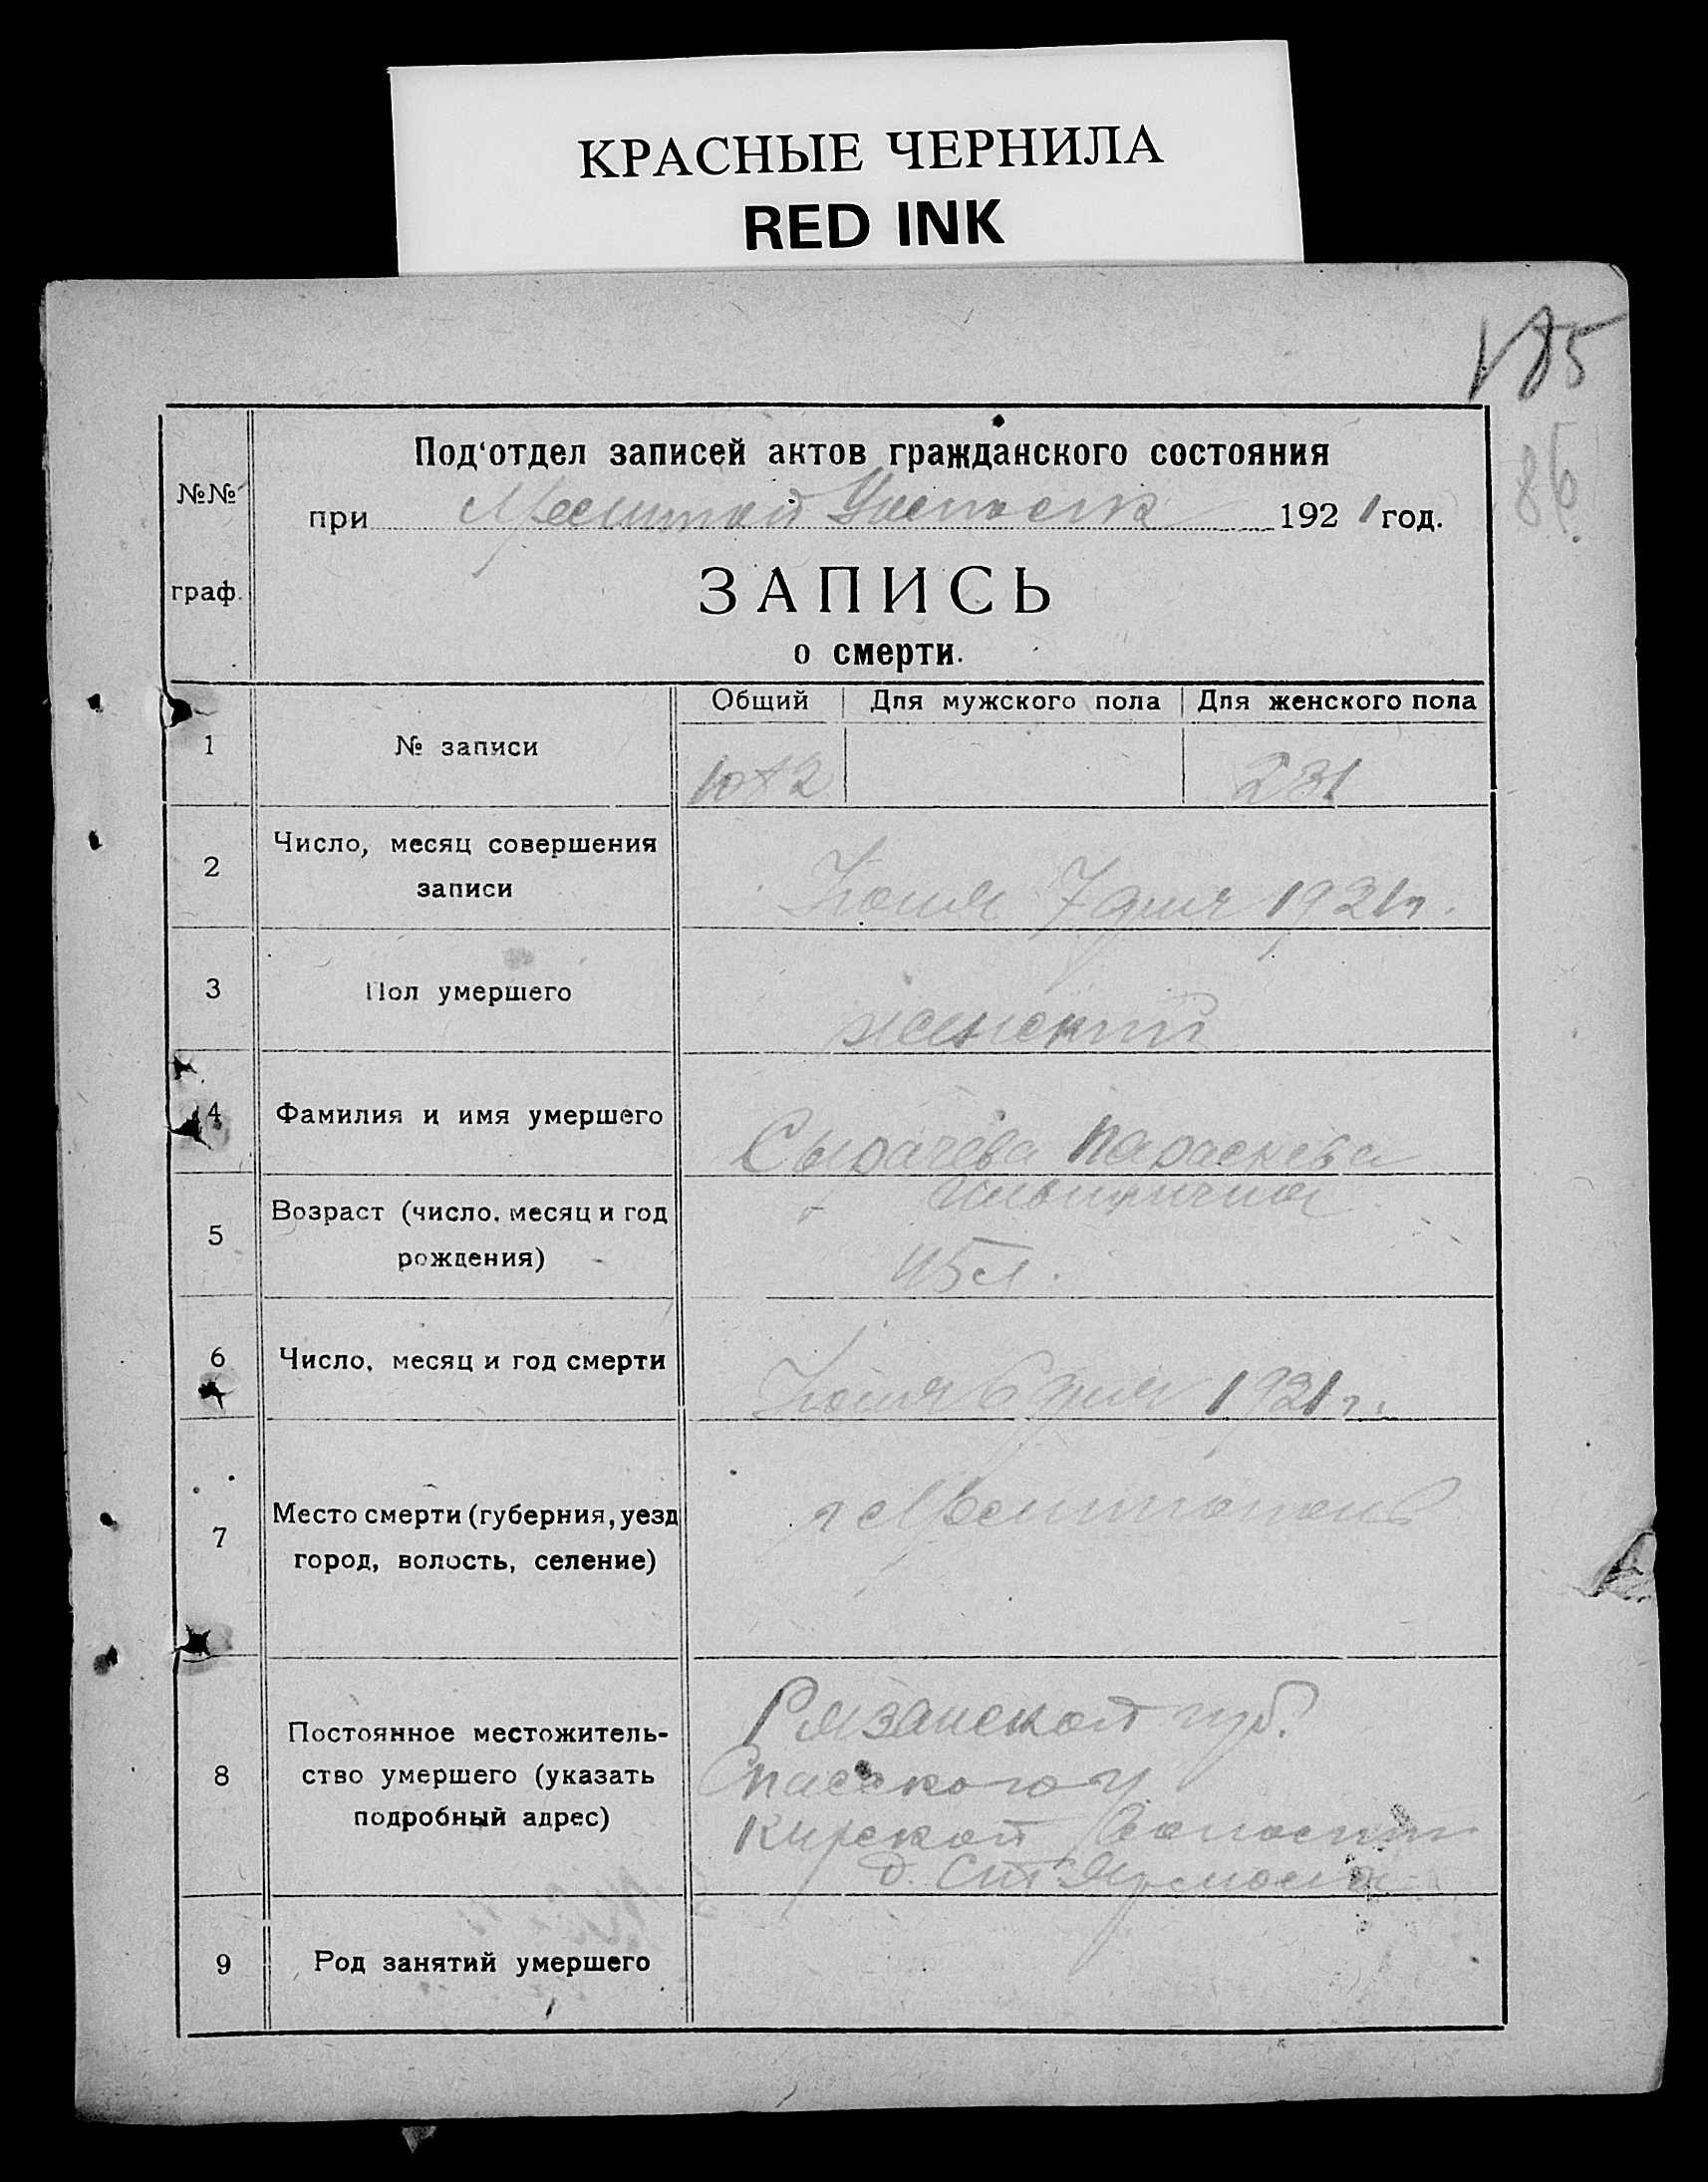 КРАСНЫЕ ЧЕРНИЛА
RED INK
185
86
Под‘отдел записей актов гражданского состояния
№№
при 1921 год.
граф.
ЗАПИСЬ
о смерти.
Общий Для мужского пола Для женского пола
1 № записи
231
2 Число, месяц совершения
записи
Июня 7 дня 1921 г.
3 Пол умершего
женский
4 Фамилия и имя умершего
Сырачева Параскева
5 Возраст (число, месяц и год
рождения)
45 л.
6 Число, месяц и год смерти
Июня 6 дня 1921 г.
7 Место смерти (губерния, уезд
город, волость, селение)
8 Постоянное местожитель-
ство умершего (указать
подробный адрес)
Рязанской губ.
Спасского у
волости
д.
9 Род занятий умершего